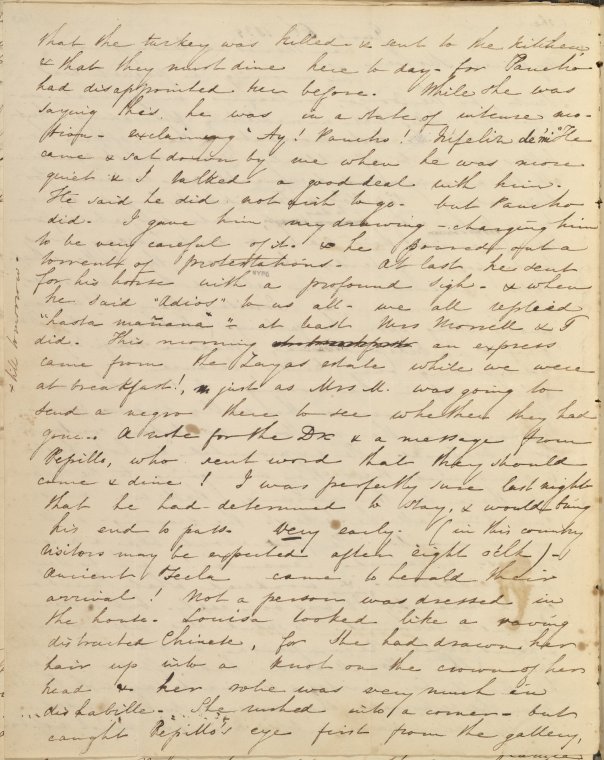 that the turkey was killed & sent to the kitchen,
& that they must dine here to day - for Pancho
had disappointed her before. While she was
saying this, he was in a state of intense mo-
tion - exclaiming "Ay! Pancho! Infeliz de mi" He
came & sat down by me when he was more
quiet & I talked a good deal with him.
He said he did not wish to go - but Pancho
did. I gave him my drawing - charging him
to be very careful of it - & he poured out a
torrent of protestations. At last he sent
for his horse with a profound sigh - & when
he said "Adios" to us all - we all replied
"hasta mañana" - at least Mrs Morrell & I
did. This morning an express
came from the Zayas estate while we were
at breakfast!, just as Mrs M. was going to
send a negro there to see whether they had
gone. A note for the Dr & a message from
Pepillo, who sent word that they should
come & dine! I was perfectly sure last night
that he had determined to stay, & would bring
his end to pass. Very early - (in this country
visitors may be expected after eight o'clk) -
ancient Tecla came to herald their
arrival! Not a person was dressed in
the house. Louisa looked like a raving
distracted Chinese, for she had drawn her
hair up into a knot on the crown of her
head & her robe was very much en
dishabille. She rushed into a corner - but
caught Pepillo's eye first from the gallery,
& till tomorrow -